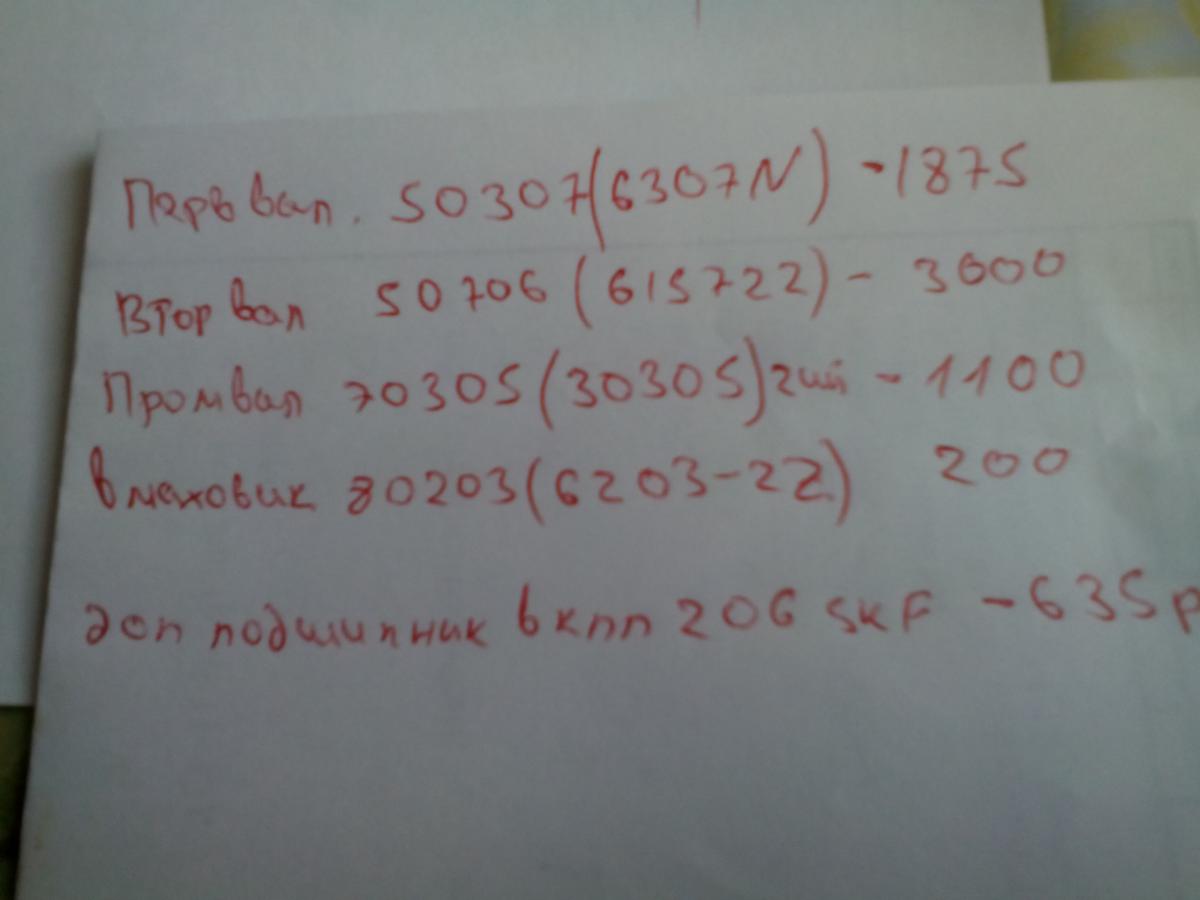 Перв вал. 50307 (6307N) - 1875
Втор вал 50706 (615722) - 3000
Промвал 70305 (30305) 2шт - 1100
в маховик 80203 (6203-2Z) 200
доп подшипник в кпп 206 SKF - 635р